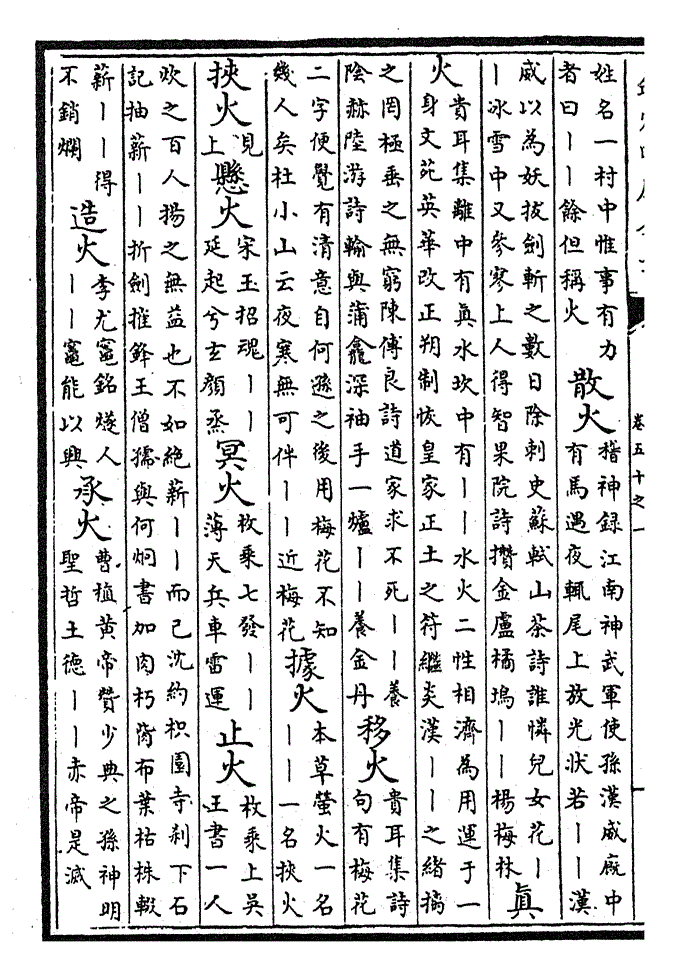 卷五十之一
姓名一村中惟事有力
者曰丨丨餘但稱火
散火
稽神録江南神武軍使孫漢威廐中
有馬遇夜輒尾上放光狀若丨丨漢
威以為妖拔劍斬之數日除刺史蘇軾山茶詩誰憐兒女花丨
丨冰雪中又參寥上人得智果院詩攢金盧橘塢丨丨楊梅林
真
火
貴耳集離中有真水坎中有丨丨水火二性相濟為用運于一
身文苑英華改正朔制恢皇家正土之符繼炎漢丨丨之緒摛
之罔極垂之無窮陳傅良詩道家求不死丨丨養
陰赫陸游詩輸與蒲龕深袖手一爐丨丨養金丹
移火
貴耳集詩
句有梅花
二字便覺有清意自何遜之後用梅花不知
幾人矣杜小山云夜寒無可伴丨丨近梅花
據火
本草螢火一名
丨丨一名挾火
挾火
見
上
懸火
宋玉招魂丨丨
延起兮玄顏烝
冥火
枚乘七發丨丨
薄天兵車雷運
止火
枚乘上吳
王書一人
炊之百人揚之無益也不如絶薪丨丨而已沈約枳園寺刹下石
記抽薪丨丨折劍摧鋒王僧孺與何炯書加肉朽胔布葉枯株輟
薪丨丨得
不銷爛
造火
李尤竈銘燧人
丨丨竈能以興
承火
曹植黄帝贊少典之孫神明
聖哲土德丨丨赤帝是滅